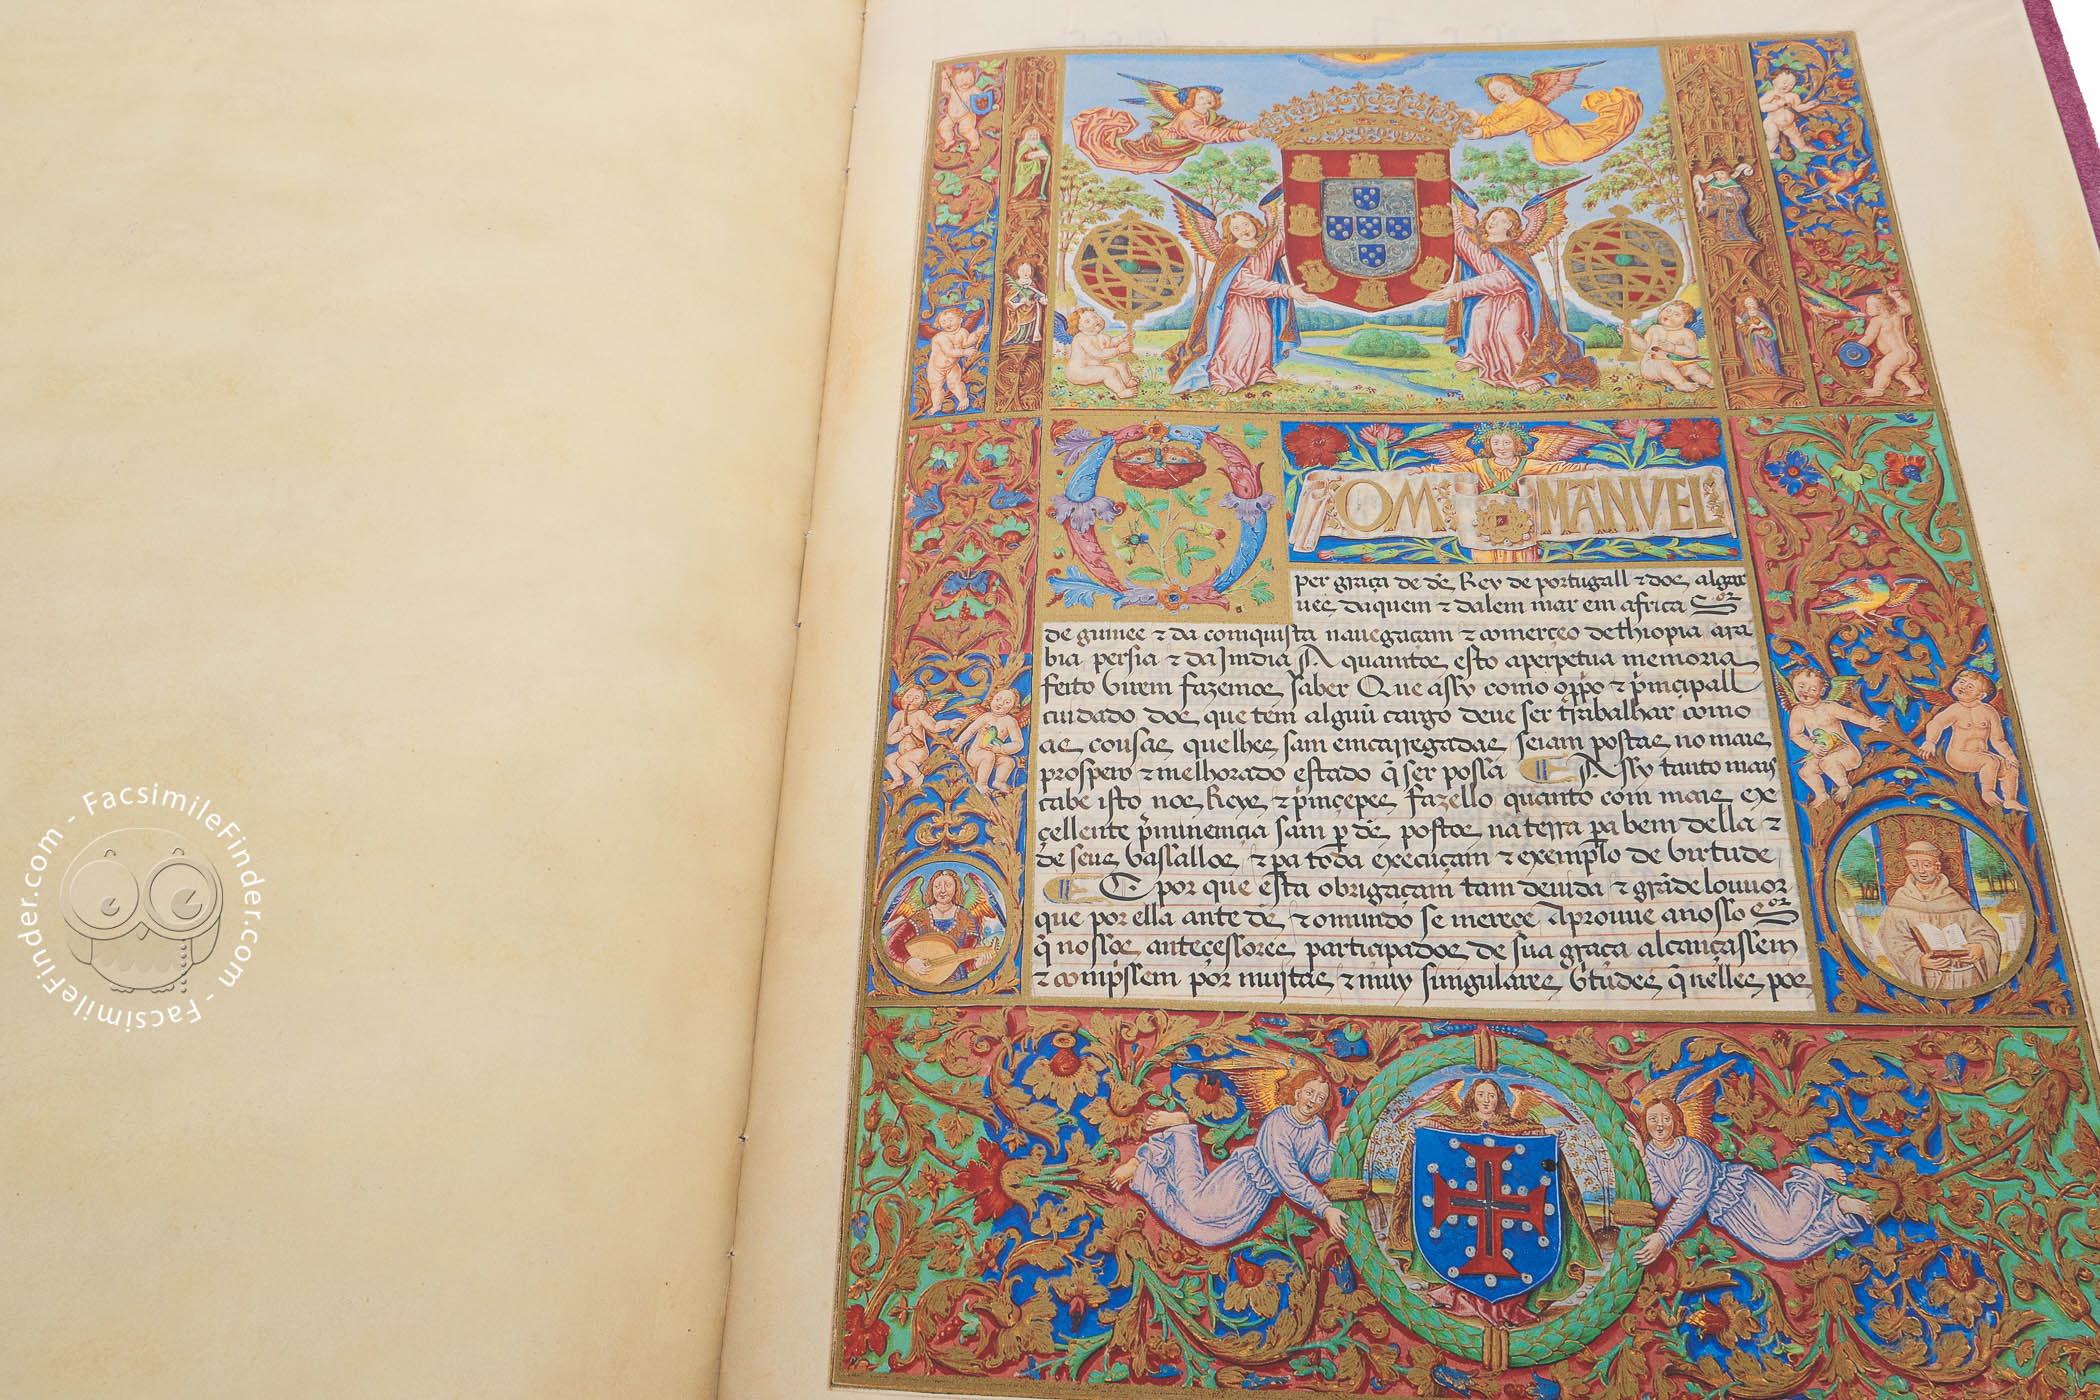 DOM MANVEL
per graça de dẽ Rey de portugall ⁊ dos algar
ues daquem ⁊ dalem mar em africa Sor
de guinee ⁊ da comquista nauegaçam ⁊ comerçeo dethiopia ara
bia persia ⁊ da Jmdia A quamtos esto aperpetua memoria
feito virem fazemos saber Que assy como o ⁊ prĩncipall
cuidado dos que tem algũu cargo deue ser trabalhar como
as cousas quelhes sam emcarregadas seiam postas no mais
prospero ⁊ melhorado estado q̃ ser possa Assy tanto mais
cabe isto nos Reys ⁊ prĩnçepes fazello quanto com mais ex
çellente prĩminemçia sam per dẽ postos na terra pa bem della ⁊
de seus vassallos ⁊ pa toda execuçam ⁊ exemplo de virtude
E por que esta obrigaçam tam deuida ⁊ grãde louuor
que por ella ante dẽ ⁊ omundo se mereçe Aprouue anosso Sor
q̃ nossos anteçessores partiçipados de sua graça alcançassem
⁊ comprĩssem por muitas ⁊ muy simgulares vtudes q̃nelles pos
FacsimileFinder.com - FacsimileFinder.com -